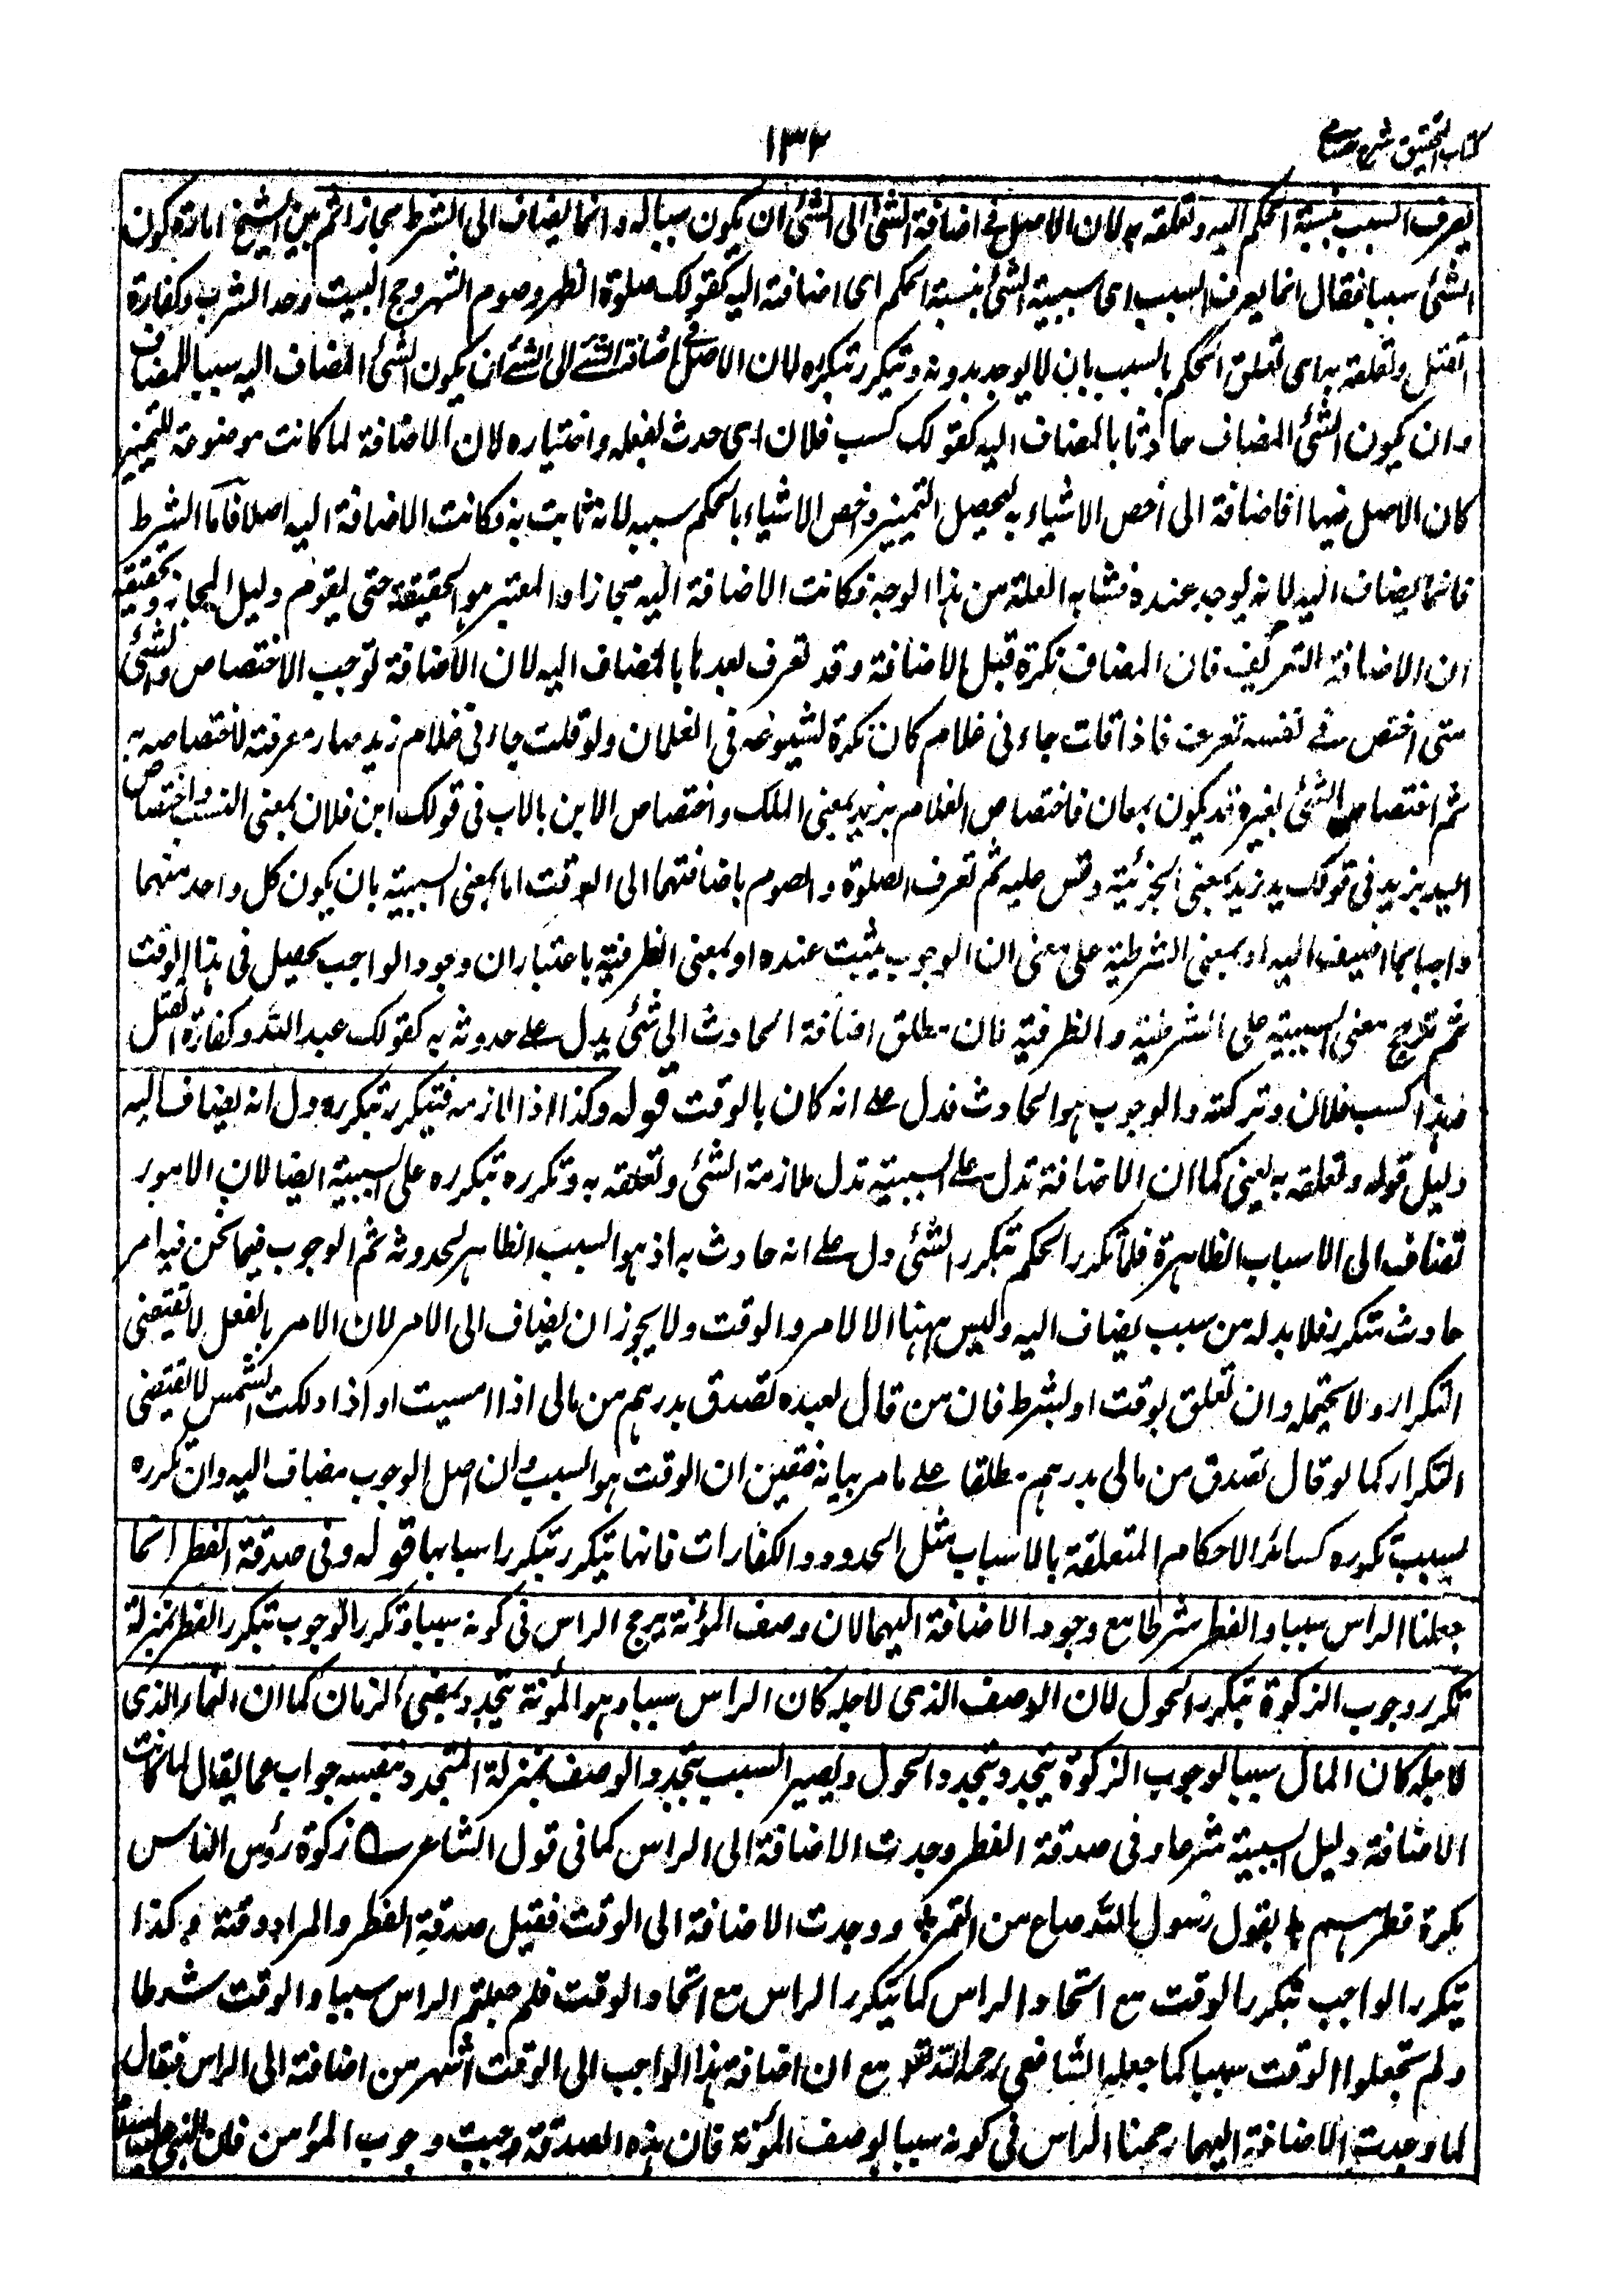 كتاب التحقيق شرح حسامي
١٣٢
يعرف السبب بنسبة الحكم اليه وتعلقه به لان الاصل في اضافة الشئ الى الشئ ان يكون سبباله وانما يضاف الى الشرط مجازا ثم بين الشيخ امارة كون
الشئ سببا فقال انما يعرف السبب اى سببية الشئ بنسبة الحكم اى اضافته اليه كقولك صلوة الظهر وصوم الشهر وحج البيت وحد الشرب وكفارة
القتل وتعلقه به اى تعلق الحكم بالسبب بان لا يوجد بدونه ويتكرر بتكرره لان الاصل في اضافة الشئ الى الشئ ان يكون الشئ المضاف اليه سببا للمضاف
وان يكون الشئ المضاف حادثا بالمضاف اليه كقولك كسب فلان اى حدث بفعله واختياره لان الاضافة لما كانت موضوعة للتمييز
كان الاصل فيها اضافة الى اخص الاشياء به ليحصل التمييز واخص الاشياء بالحكم سببه لانه ثابت به فكانت الاضافة اليه اصلا فاما الشرط
فانما يضاف اليه لانه يوجد عنده فشابه العلة من هذا الوجه فكانت الاضافة اليه مجازا والمعتبر هو الحقيقة حتى يقوم دليل المجاز وتحقيقه
ان الاضافة التعريف فان المضاف نكرة قبل الاضافة وقد تعرف بعدها بالمضاف اليه لان الاضافة توجب الاختصاص والشئ
متى اختص في نفسه تعرف فاذا قلت جاءنى غلام كان نكرة لشيوعه فى الغلمان ولو قلت جاءنى غلام زيد صار معرفة لاختصاصه به
ثم اختصاص الشئ بغيره قد يكون بمعان فاختصاص الغلام بزيد بمعنى الملك واختصاص الابن بالاب فى قولك ابن فلان بمعنى النسب واختصاص
اليد بزيد فى قولك يد زيد بمعنى الجزئية وقس عليه ثم تعرف الصلوة والصوم باضافتهما الى الوقت اما بمعنى السببية بان يكون كل واحد منهما
واجبا بما اضيف اليه او بمعنى الشرطية على معنى ان الوجوب يثبت عنده او بمعنى الظرفية باعتبار ان وجود الواجب يحصل فى هذا الوقت
ثم ترجح معنى السببية على الشرطية والظرفية فان مطلق اضافة الحادث الى شئ يدل على حدوثه به كقولك عبد الله وكفارة القتل
وهذا كسب فلان وتركته والوجوب هو الحادث فدل على انه كان بالوقت قوله وكذا اذا لازمه فتكرر بتكرره دل انه يضاف اليه
دليل قوله وتعلقه به يعنى كما ان الاضافة تدل على السببية تدل ملازمة الشئ وتعلقه به وتكرره بتكرره على السببية ايضا لان الامور
تضاف الى الاسباب الظاهرة فلما تكرر الحكم بتكرر الشئ دل على انه حادث به اذ هو السبب الظاهر لحدوثه ثم الوجوب فيما نحن فيه امر
حادث متكرر فلا بد له من سبب يضاف اليه وليس ههنا الا الامر والوقت ولا يجوز ان يضاف الى الامر لان الامر بالفعل لا يقتضى
التكرار ولا يحتمله وان تعلق بوقت او بشرط فان من قال لعبده تصدق بدرهم من مالى اذا امسيت او اذا دلكت الشمس لا يقتضى
التكرار كما لو قال تصدق من مالى بدرهم مطلقا على ما مر بيانه فتعين ان الوقت هو السبب وان اصل الوجوب مضاف اليه وان تكرره
بسبب تكرره كسائر الاحكام المتعلقة بالاسباب مثل الحدود والكفارات فانها يتكرر بتكرر اسبابها قوله وفى صدقة الفطر انما
جعلنا الراس سببا والفطر شرطا مع وجود الاضافة اليهما لان وصف المؤنة يرجح الراس فى كونه سببا وتكرر الوجوب بتكرر الفطر بمنزلة
تكرر وجوب الزكوة بتكرر الحول لان الوصف الذى لاجله كان الراس سببا وهو المؤنة يتجدد بمضى الزمان كما ان النماء الذى
لاجله كان المال سببا لوجوب الزكوة يتجدد بتجدد الحول ويصير السبب بتجدد الوصف بمنزلة المتجدد بنفسه جواب عما يقال لما كانت
الاضافة دليل السببية شرعا وفى صدقة الفطر وجدت الاضافة الى الراس كما فى قول الشاعر ؎ زكوة رؤس الناس
بكرة فطرهم * بقول رسول الله صاع من التمر * ووجدت الاضافة الى الوقت فقيل صدقة الفطر والمراد وقته وكذا
يتكرر الواجب بتكرر الوقت مع اتحاد الراس كما يتكرر الراس مع اتحاد الوقت فلم جعلتم الراس سببا والوقت شرطا
ولم تجعلوا الوقت سببا كما جعله الشافعى رحمه الله مع ان اضافة هذا الواجب الى الوقت اشهر من اضافته الى الراس فقال
لما وجدت الاضافة اليهما رجحنا الراس فى كونه سببا بوصف المؤنة فان هذه الصدقة وجبت وجوب المؤمن فان النبى عليه السلام